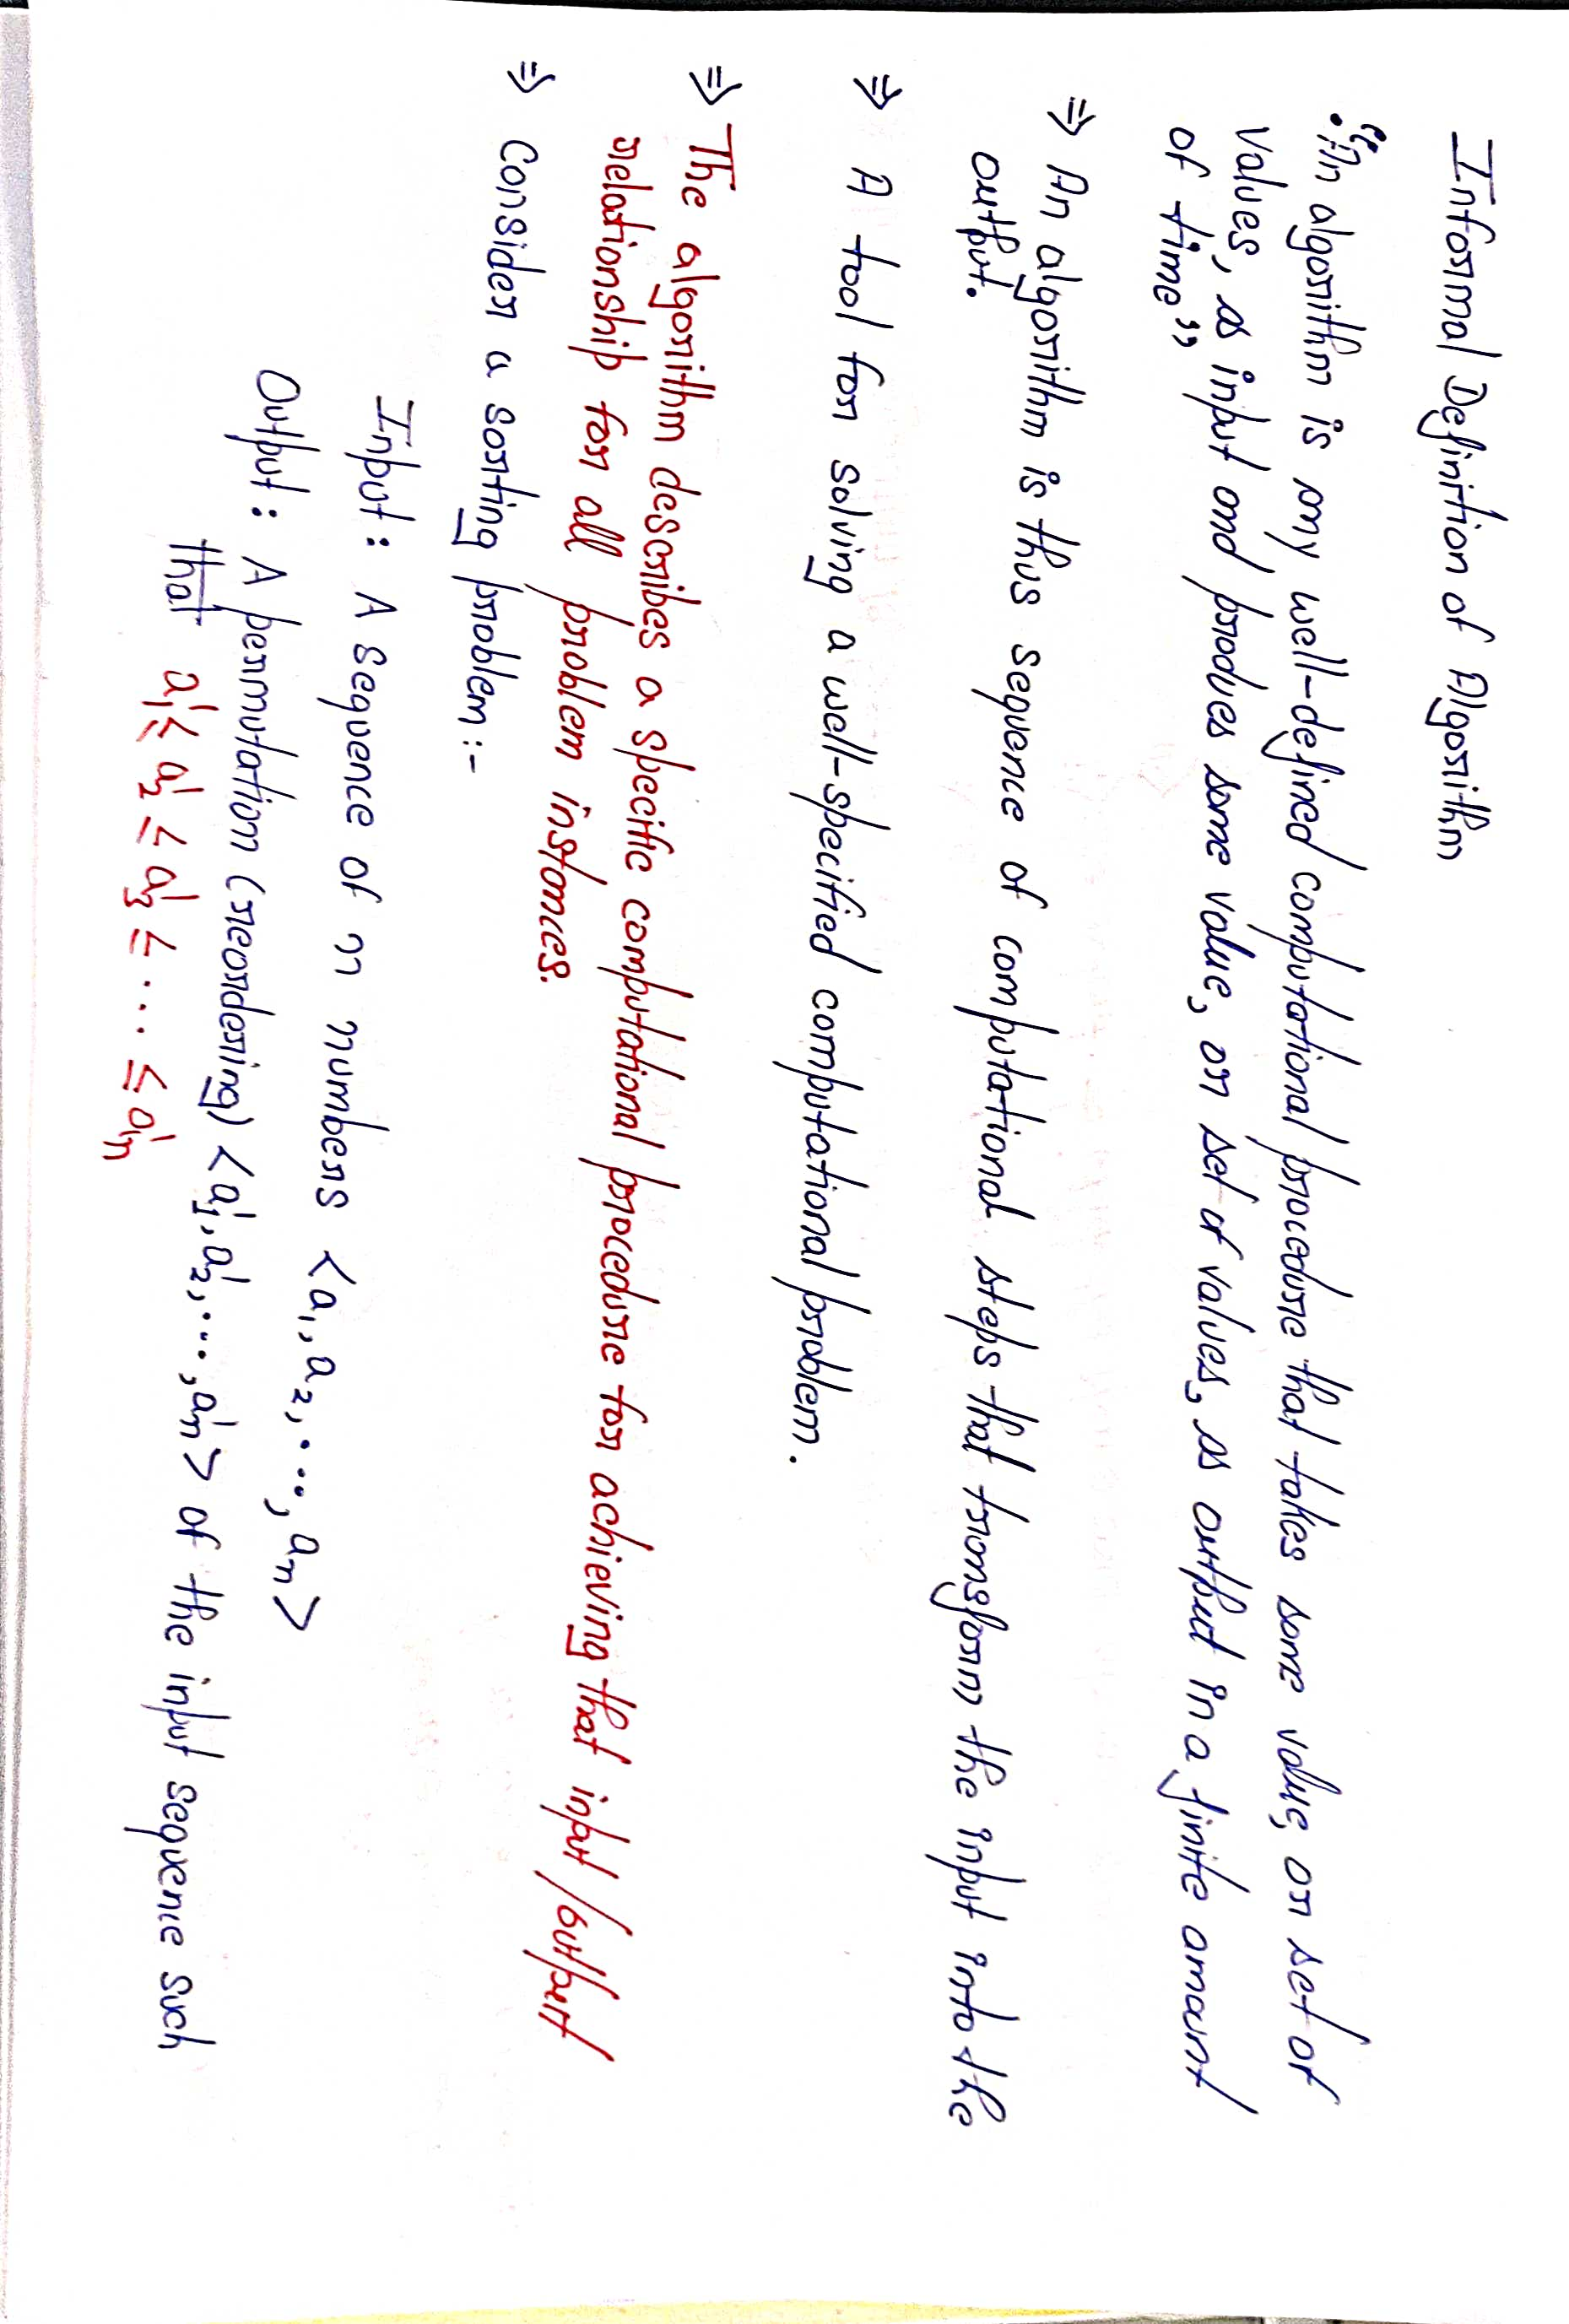 Informal Definition of Algorithm
• "An algorithm is any well-defined computational procedure that takes some value, or set of
values, as input and produes some value, or set of values, as output in a finite amount
of time"
⇒ An algorithm is thus sequence of computational steps that transform the input into the
output.
⇒ A tool for solving a well-specified computational problem.
⇒ The algorithm describes a specific computational procedure for achieving that input/output
relationship for all problem instances.
⇒ Consider a sorting problem:-
Input: A sequence of n numbers <a₁, a₂, ..., aₙ>
Output: A permutation (reordering) <a'₁, a'₂, ..., a'ₙ> of the input sequence such
that a'₁ ≤ a'₂ ≤ a'₃ ≤ .... ≤ a'ₙ